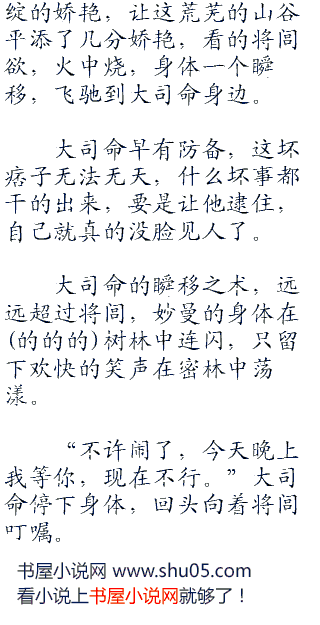 绽的娇艳，让这荒芜的山谷
平添了几分娇艳，看的将闾
欲，火中烧，身体一个瞬
移，飞驰到大司命身边。
大司命早有防备，这坏
痞子无法无天，什么坏事都
干的出来，要是让他逮住，
自己就真的没脸见人了。
大司命的瞬移之术，远
远超过将闾，妙曼的身体在
(的的的)树林中连闪，只留
下欢快的笑声在密林中荡
漾。
“不许闹了，今天晚上
我等你，现在不行。”大司
命停下身体，回头向着将闾
叮嘱。
书屋小说网 www.shu05.com
看小说上书屋小说网就够了！